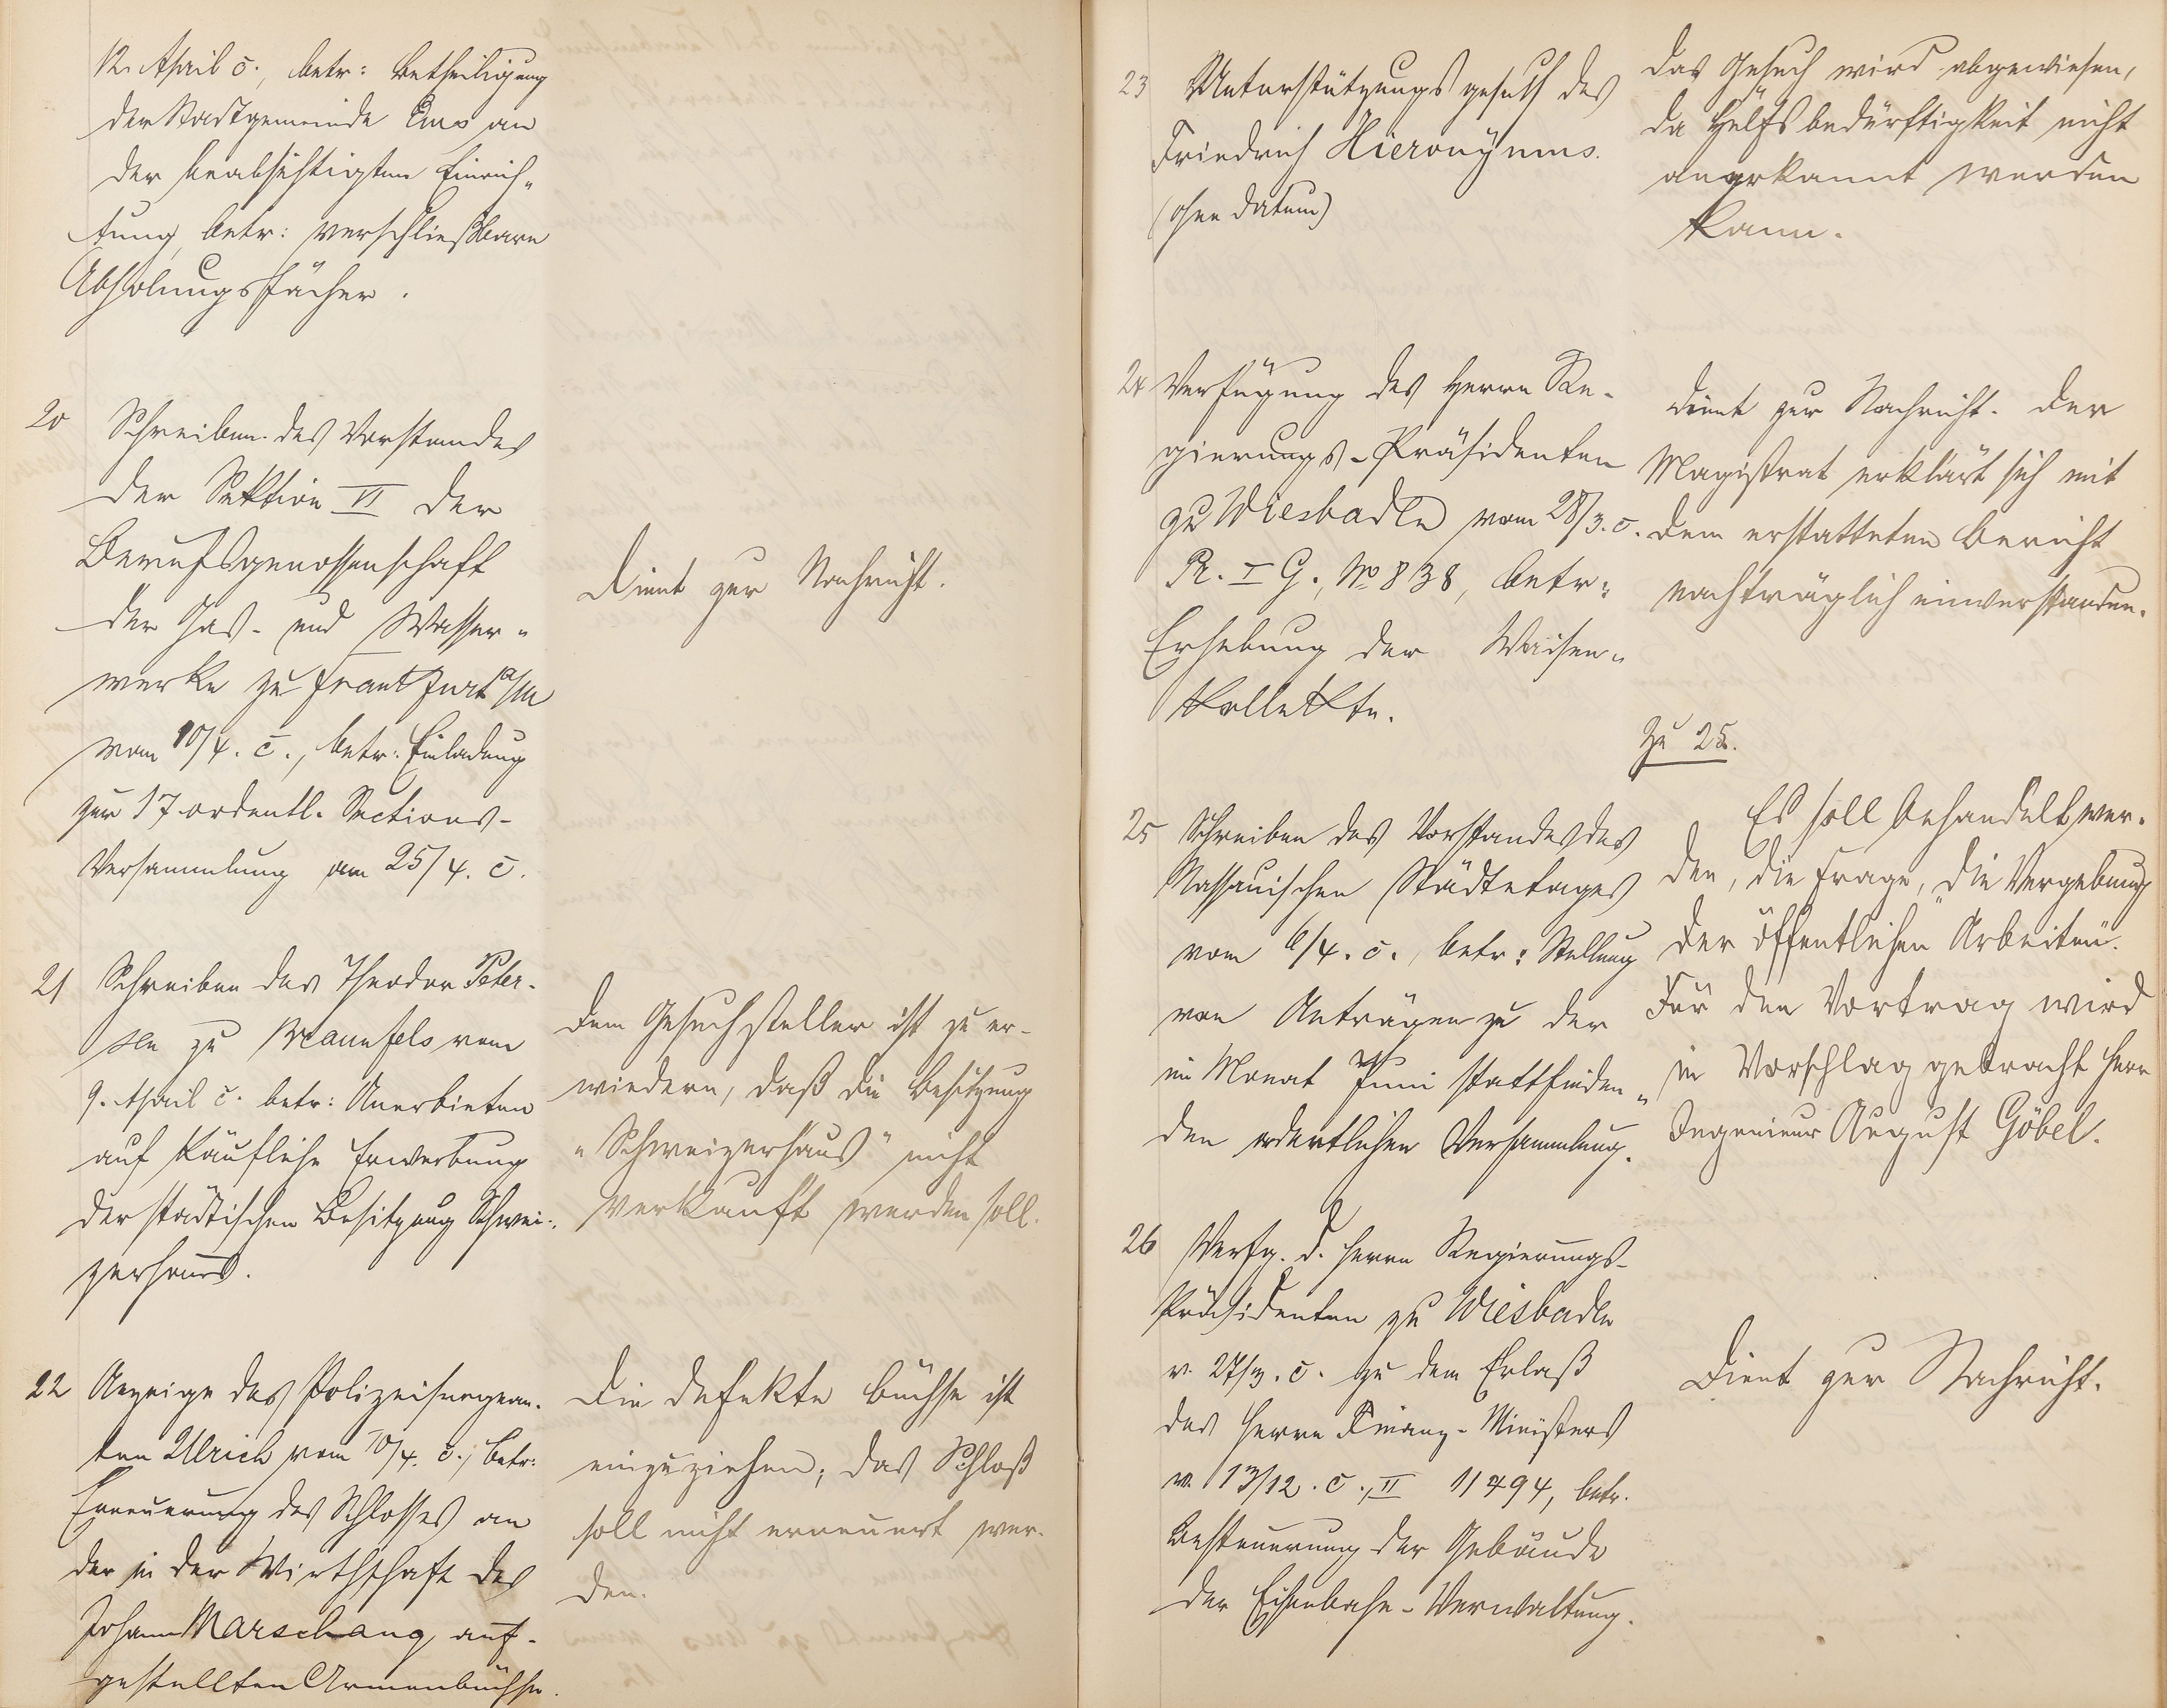 12. April c., betr: Betheiligung
der Stadtgemeinde Ems an
der beabsichtigten Einrich-
tung, betr: verschließbare
Abholungsfächer.
20 Schreiben des Vorstandes
der Sektion VI der
Berufsgenossenschaft
der Gas- und Wasser-
werke zu Frankfurt a/M
vom 10/4. c., betr: Einladung
zur 17 ordentl. Sections-
Versammlung am 25/4. c.
Dient zur Nachricht.
21 Schreiben des Theodor Peter-
sen zu Braunfels vom
9. April c. betr: Anerbieten
auf käufliche Erwerbung
der städtischen Besitzung Schwei-
zerhaus.
Dem Gesuchsteller ist zu er-
wiedern, daß die Besitzung
"Schweizerhaus" nicht
verkauft werden soll.
22 Anzeige des Polizeisergean-
ten Ulrich vom 10/4. c., betr:
Erneuerung des Schlosses an
der in der Wirthschaft des
Johann Marschang auf-
gestellten Armenbüchse.
Die defekte Büchse ist
einzuziehen; das Schloß
soll nicht erneuert wer-
den.
23 Unterstützungsgesuch des
Friedrich Hieronymus.
(ohne Datum)
Das Gesuch wird abgewiesen,
da Hülfsbedürftigkeit nicht
anerkannt werden
kann.
24 Verfügung des Herrn Re-
gierungs-Präsidenten
zu Wiesbaden vom 28/3. c.
Pr. I G., No 838, betr:
Erhebung der Waisen-
kollekte.
Dient zur Nachricht. Der
Magistrat erklärt sich mit
dem erstatteten Bericht
nachträglich einverstanden.
25 Schreiben des Vorstandes des
Nassauischen Städtetages
vom 6/4. c., betr: Stellung
von Anträgen zu der
im Monat Juni stattfinden-
den ordentlichen Versammlung.
Zu 25.
Es soll behandelt wer-
den, die Frage, "die Vergebung
der öffentlichen Arbeiten".
Für den Vortrag wird
in Vorschlag gebracht Herr
Ingenieur August Göbel.
26 Verfg. d. Herrn Regierungs-
Präsidenten zu Wiesbaden
v. 27/3. c. zu dem Erlaß
des Herrn Finanz-Ministers
v. 13/12. c., II 11494, betr.
Besteuerung der Gebäude
der Eisenbahn-Verwaltung.
Dient zur Nachricht.